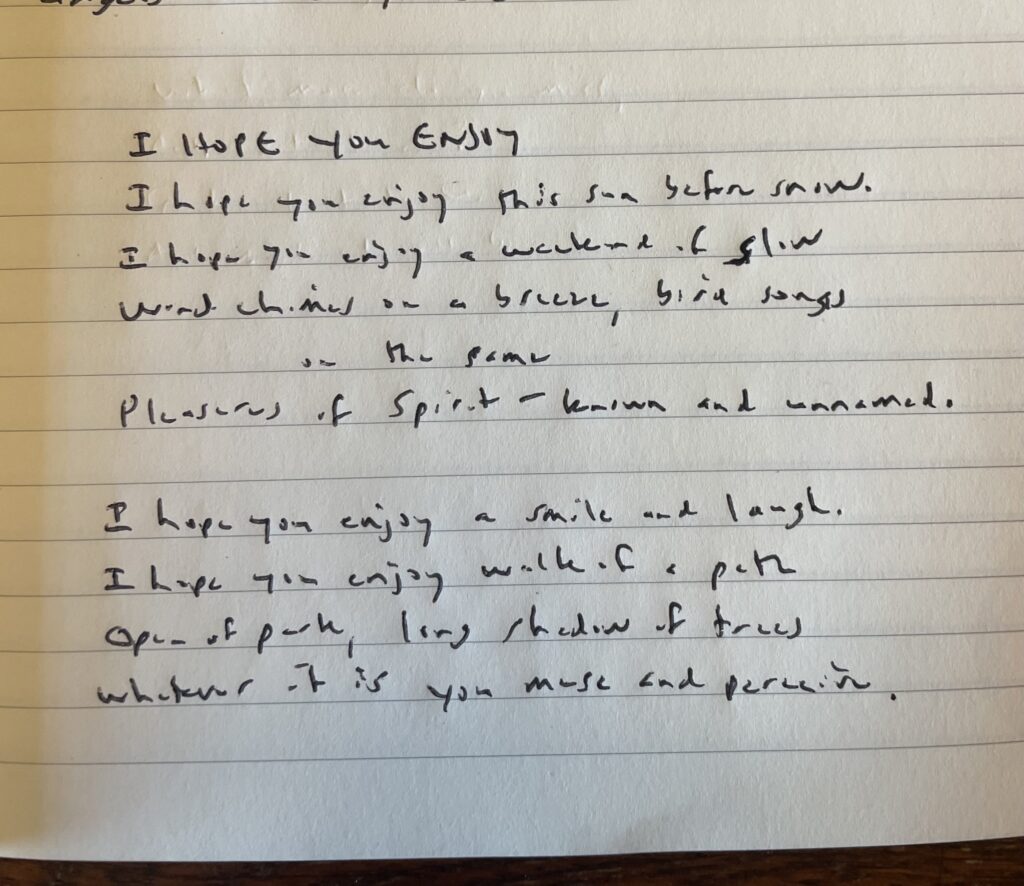 I HOPE YOU ENJOY
I hope you enjoy this sun before snow.
I hope you enjoy a weekend of slow
wind chimes on a breeze, bird songs
on the same
Pleasures of Spirit - known and unnamed.
I hope you enjoy a smile and laugh.
I hope you enjoy walk of a path
Open of park, long shadow of trees
whatever it is you muse and perceive.